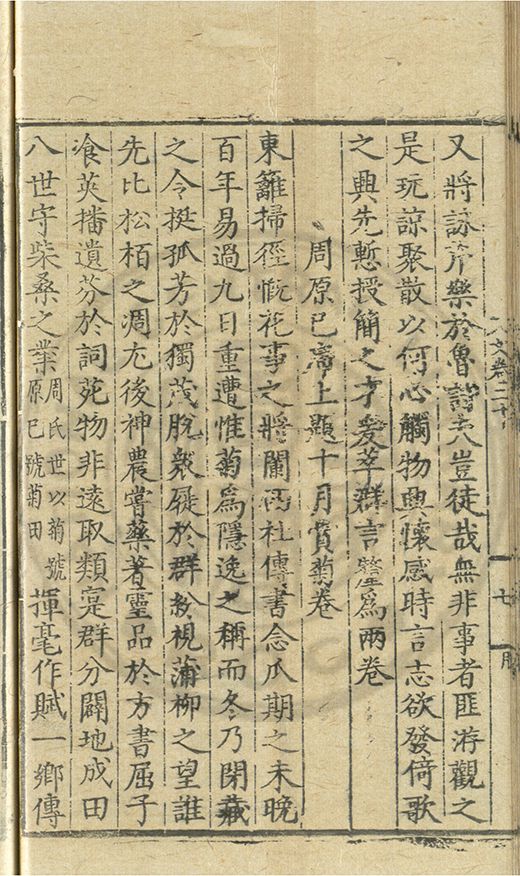 又將詠芹樂於魯詩夫豈徒哉無非事者匪游觀之
是玩諒聚散以何心觸物興懷感時言志欲發倚歌
之興先慙授簡之才爰萃群言釐爲兩卷
周原巳席上題十月賞菊卷
東籬掃徑慨花事之將闌傳書念瓜期之未晚
百年易過九日重遭惟菊爲隱逸之稱而冬乃閉藏
之令挺孤芳於獨茂脫衆於群紛視蒲柳之望誰
先比松栢之凋尤後神農嘗藥著靈品於方書屈子
飡英播遺芬於詞苑物非遠取類寔群分闢地成田
八世守柴桑之業周氏世以菊號原巳號菊田揮毫作賦一鄉傳
文卷二十
七